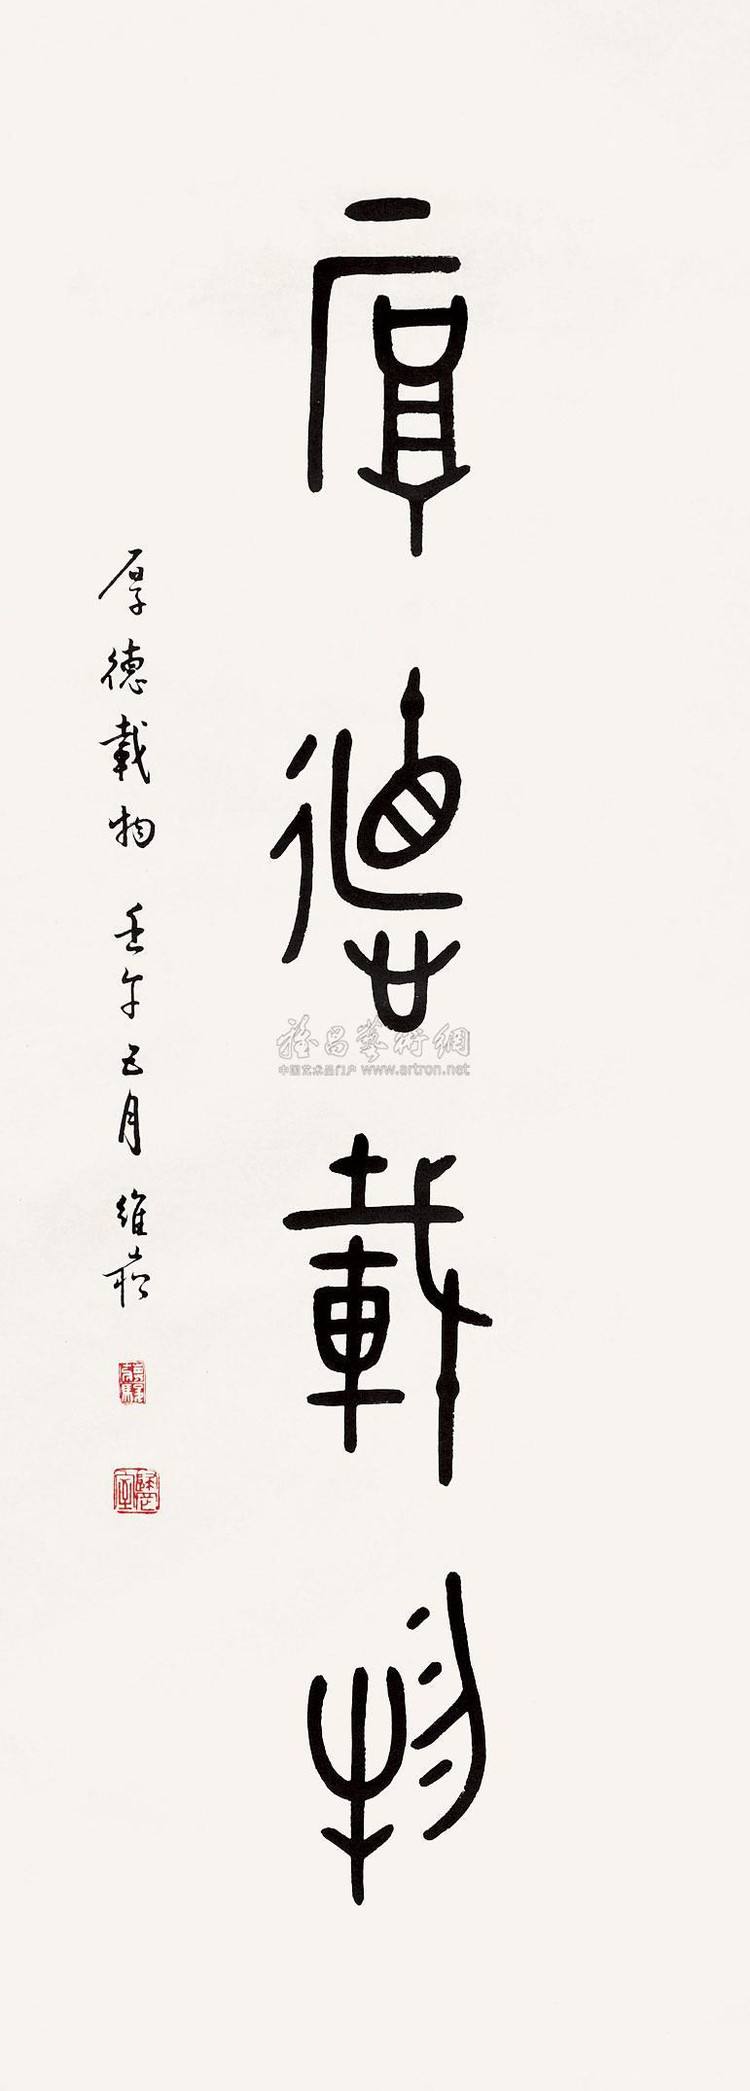 厚德載物
厚德載物 壬午五月 維崧
雅昌藝術網
中国艺术品门户 www.artron.net